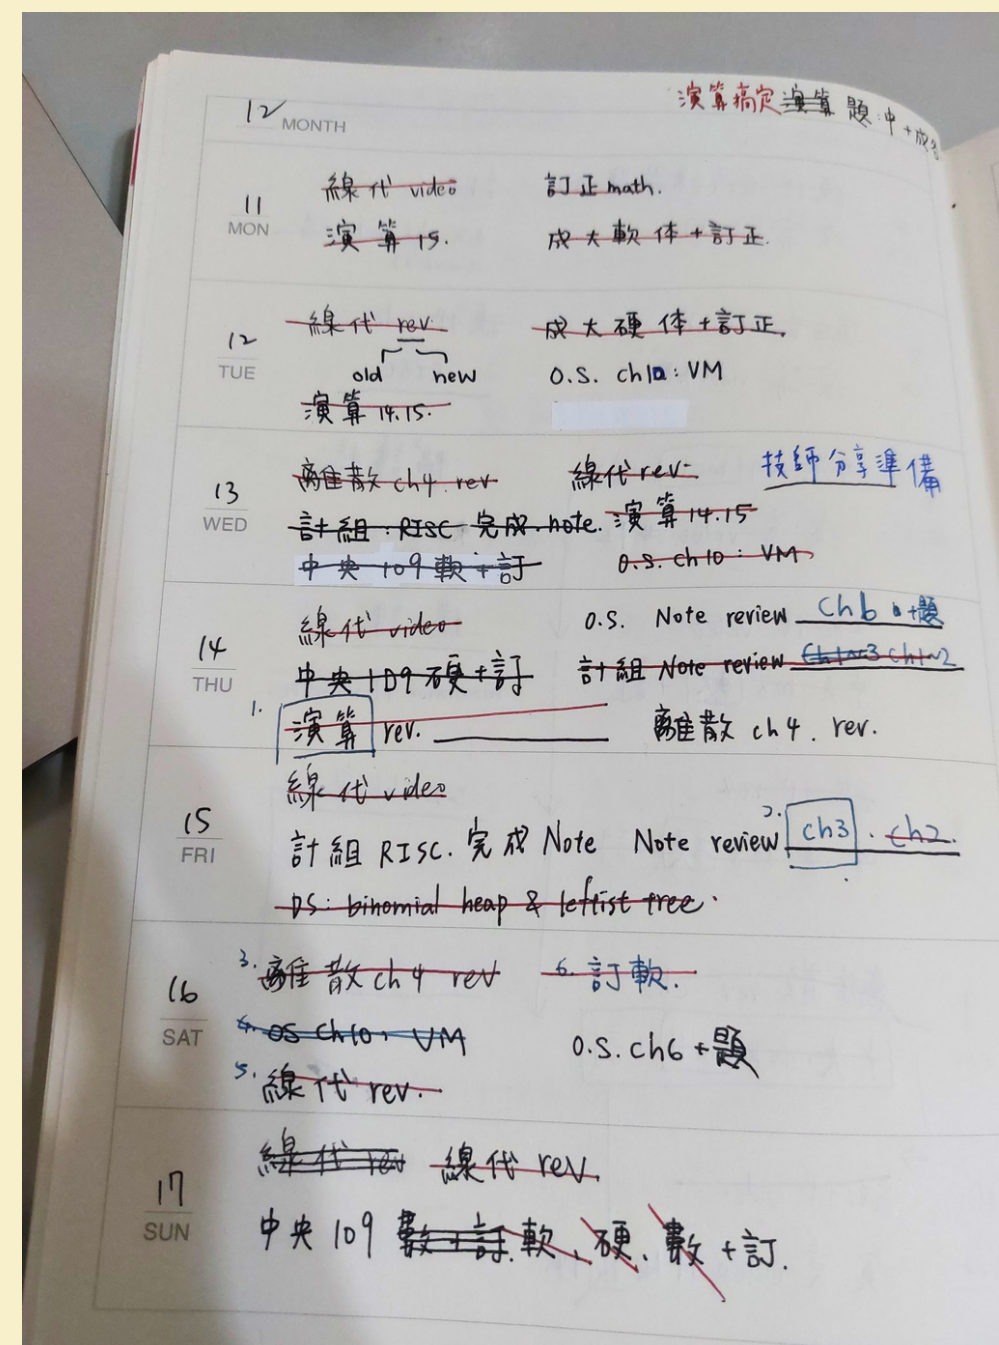 12 MONTH
演算搞定 演算 題:中+成
11 MON
線代 video
訂正 math.
演算 15.
成大軟体+訂正.
12 TUE
線代 rev.
成大硬体+訂正.
old new
O.S. ch10: VM
演算 14.15.
13 WED
離散 ch4. rev
線代 rev.
技師分享準備
計組: RISC 完成 note.
演算 14.15
中央 109 軟+訂
O.S. ch10: VM
14 THU
線代 video
O.S. Note review ch6 +題
中央 109 硬+訂
計組 Note review ch1~3 ch1~2
1. 演算 rev.
離散 ch4. rev.
15 FRI
線代 video
計組 RISC. 完成 Note Note review 2. ch3. ch2.
DS: binomial heap & leftist tree.
16 SAT
3. 離散 ch4 rev
6. 訂軟.
4. OS ch10: VM
O.S. ch6 +題
5. 線代 rev.
17 SUN
線代 rev 線代 rev.
中央 109 數+訂. 軟、硬、數+訂.